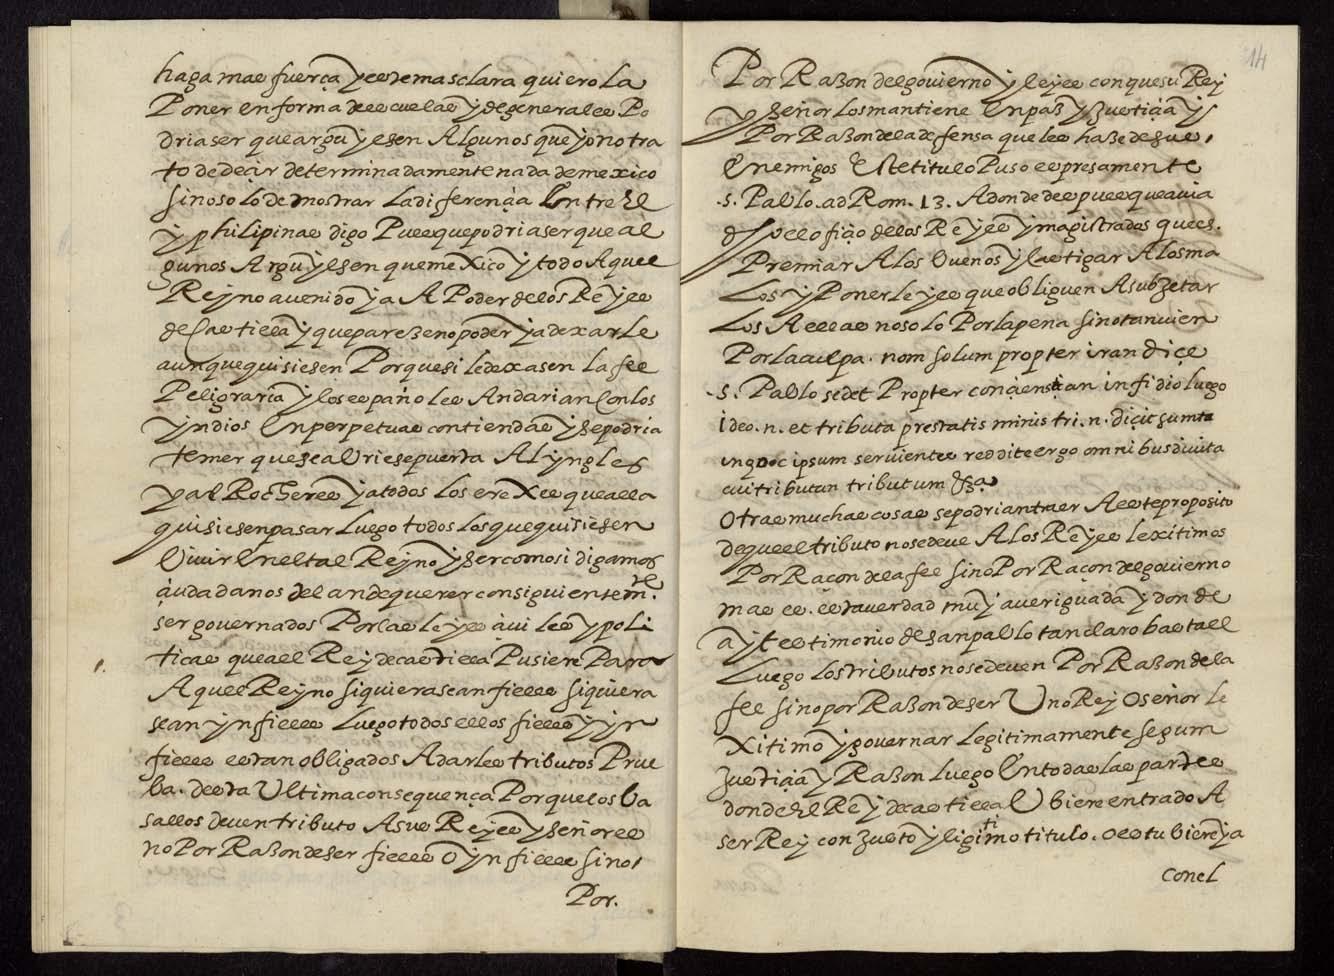 haga mas fuerça y este mas clara quiero la
Poner en forma de escuelas y de generales. Po
dria ser que arguyesen Algunos que yo no tra
to de deçir determinadamente nada de mexico
sino solo demostrar la diferençia Entre El
y philipinas digo Pues que podria ser que al
gunos Arguyesen que meXico y todo Aquel
Reyno a venido ya A Poder de los Reyes
de Castilla y que pareze no poder ya dexarle
aunque quisiesen Porque si le dexasen la fee
Peligraria y los españoles Andarian Con los
yndios En perpetuas contiendas y se podria
temer que se abriese puerta Al yngles
y al Rocheres y a todos los ereXes que alla
quisiesen pasar luego todos los que quisiesen
Vivir En el tal Reyno y ser como si digamos
çiudadanos del an de querer consiguientemte.
ser governados Por las leyes çiviles y poli
ticas que al el Rey de castilla Pusiere Para
Aquel Reyno siquiera sean fieles siquiera
sean ynfieles luego todos ellos fieles y yn
fieles estan obligados A darles tributos Prue
ba. desta Ultima consequençia Porque los Va
sallos deven tributo A sus Reyes y señores
no Por Razon de ser fieles o ynfieles sino
Por.
14
Por Razon del govierno y leyes con que su Rey
y señor los mantiene En paz y Justiçia y
Por Razon de la defensa que les haze de sus
Enemigos Este titulo Puso espresamente
.s. Pablo. ad Rom. 13. Adonde despues que avia
ofiçio de los Reyes y magistrados que es.
Premiar A los buenos y castigar A los ma
los y Poner leyes que obliguen A subjetar
los A ellas no solo Por la pena sino tanvien
Por la culpa. nom solum propter iran diçe
.s. Pablo sed et Propter conçiensian infidio luego
ideo. n. et tributa prestatis minis tri. n. diçit sumta
in qoc ipsum servientes reddite ergo omnibus divita
cui tributan tributum
Otras muchas cosas se podrian traer A este proposito
de que el tributo no se deve A los Reyes lexitimos
Por Raçon de la fee sino Por Raçon del govierno
mas es. esta verdad muy averiguada y donde
ay testimonio de san pablo tan claro basta el
Luego los tributos no se deven Por Razon de la
fee sino por Razon de ser Uno Rey O señor le
Xitimo y governar legitimamente segum
Justiçia y Razon luego En todas las partes
donde El Rey de castilla Ubiere entrado A
ser Rey con Justo y ligitimo titulo. o estubiere ya
conel